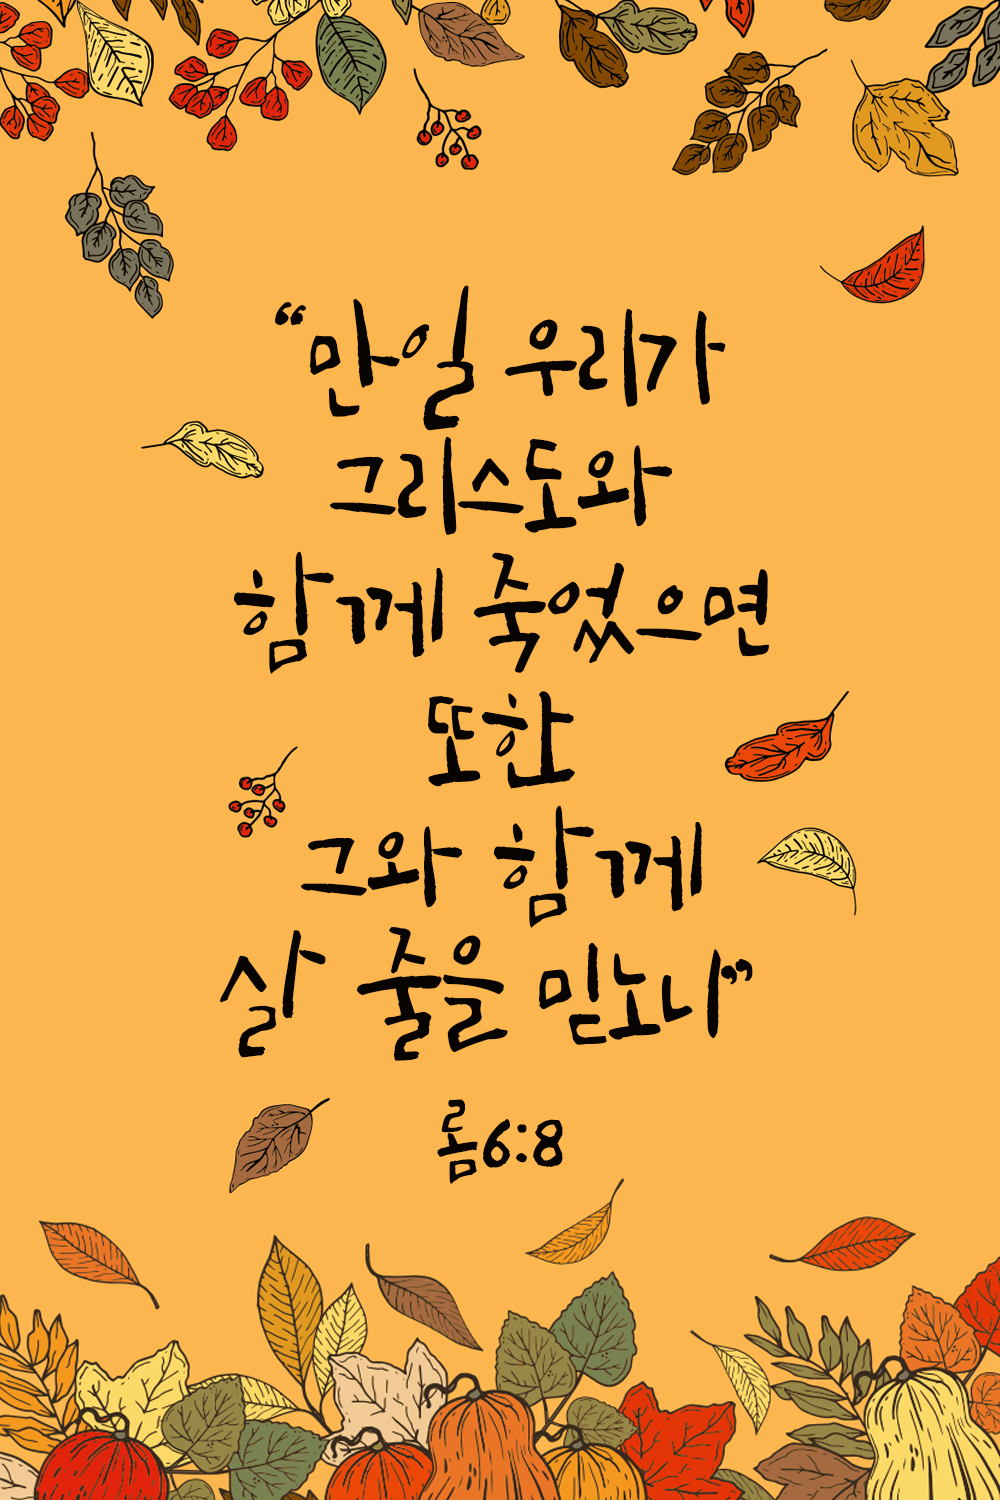 “만일 우리가
그리스도와
함께 죽었으면
또한
그와 함께
살 줄을 믿노니”
롬6:8